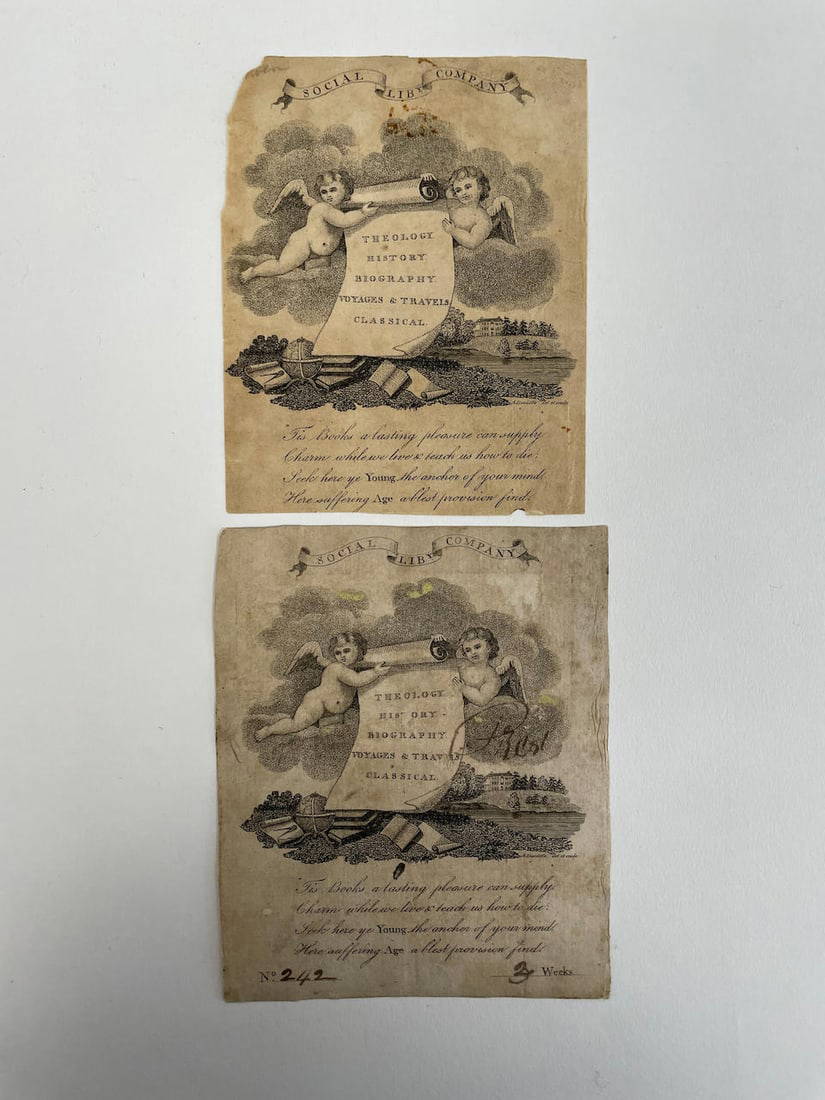 SOCIAL LIBY COMPANY
THEOLOGY
HISTORY
BIOGRAPHY
VOYAGES & TRAVELS
CLASSICAL.
'Tis Books a lasting pleasure can supply
Charm while we live & teach us how to die:
Seek here ye Young the anchor of your mind
Here suffering Age a blest provision find.
SOCIAL LIBY COMPANY
THEOLOGY
HISTORY
BIOGRAPHY
VOYAGES & TRAVELS
CLASSICAL.
'Tis Books a lasting pleasure can supply
Charm while we live & teach us how to die:
Seek here ye Young the anchor of your mind
Here suffering Age a blest provision find.
No. 242 3 Weeks